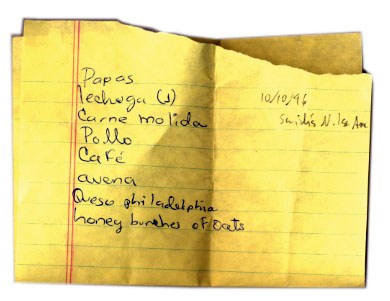 Papas
lechoga (1)
Carne molida
Pollo
Café
avena
Queso philadelphia
honey bunches of Oats
10/10/96